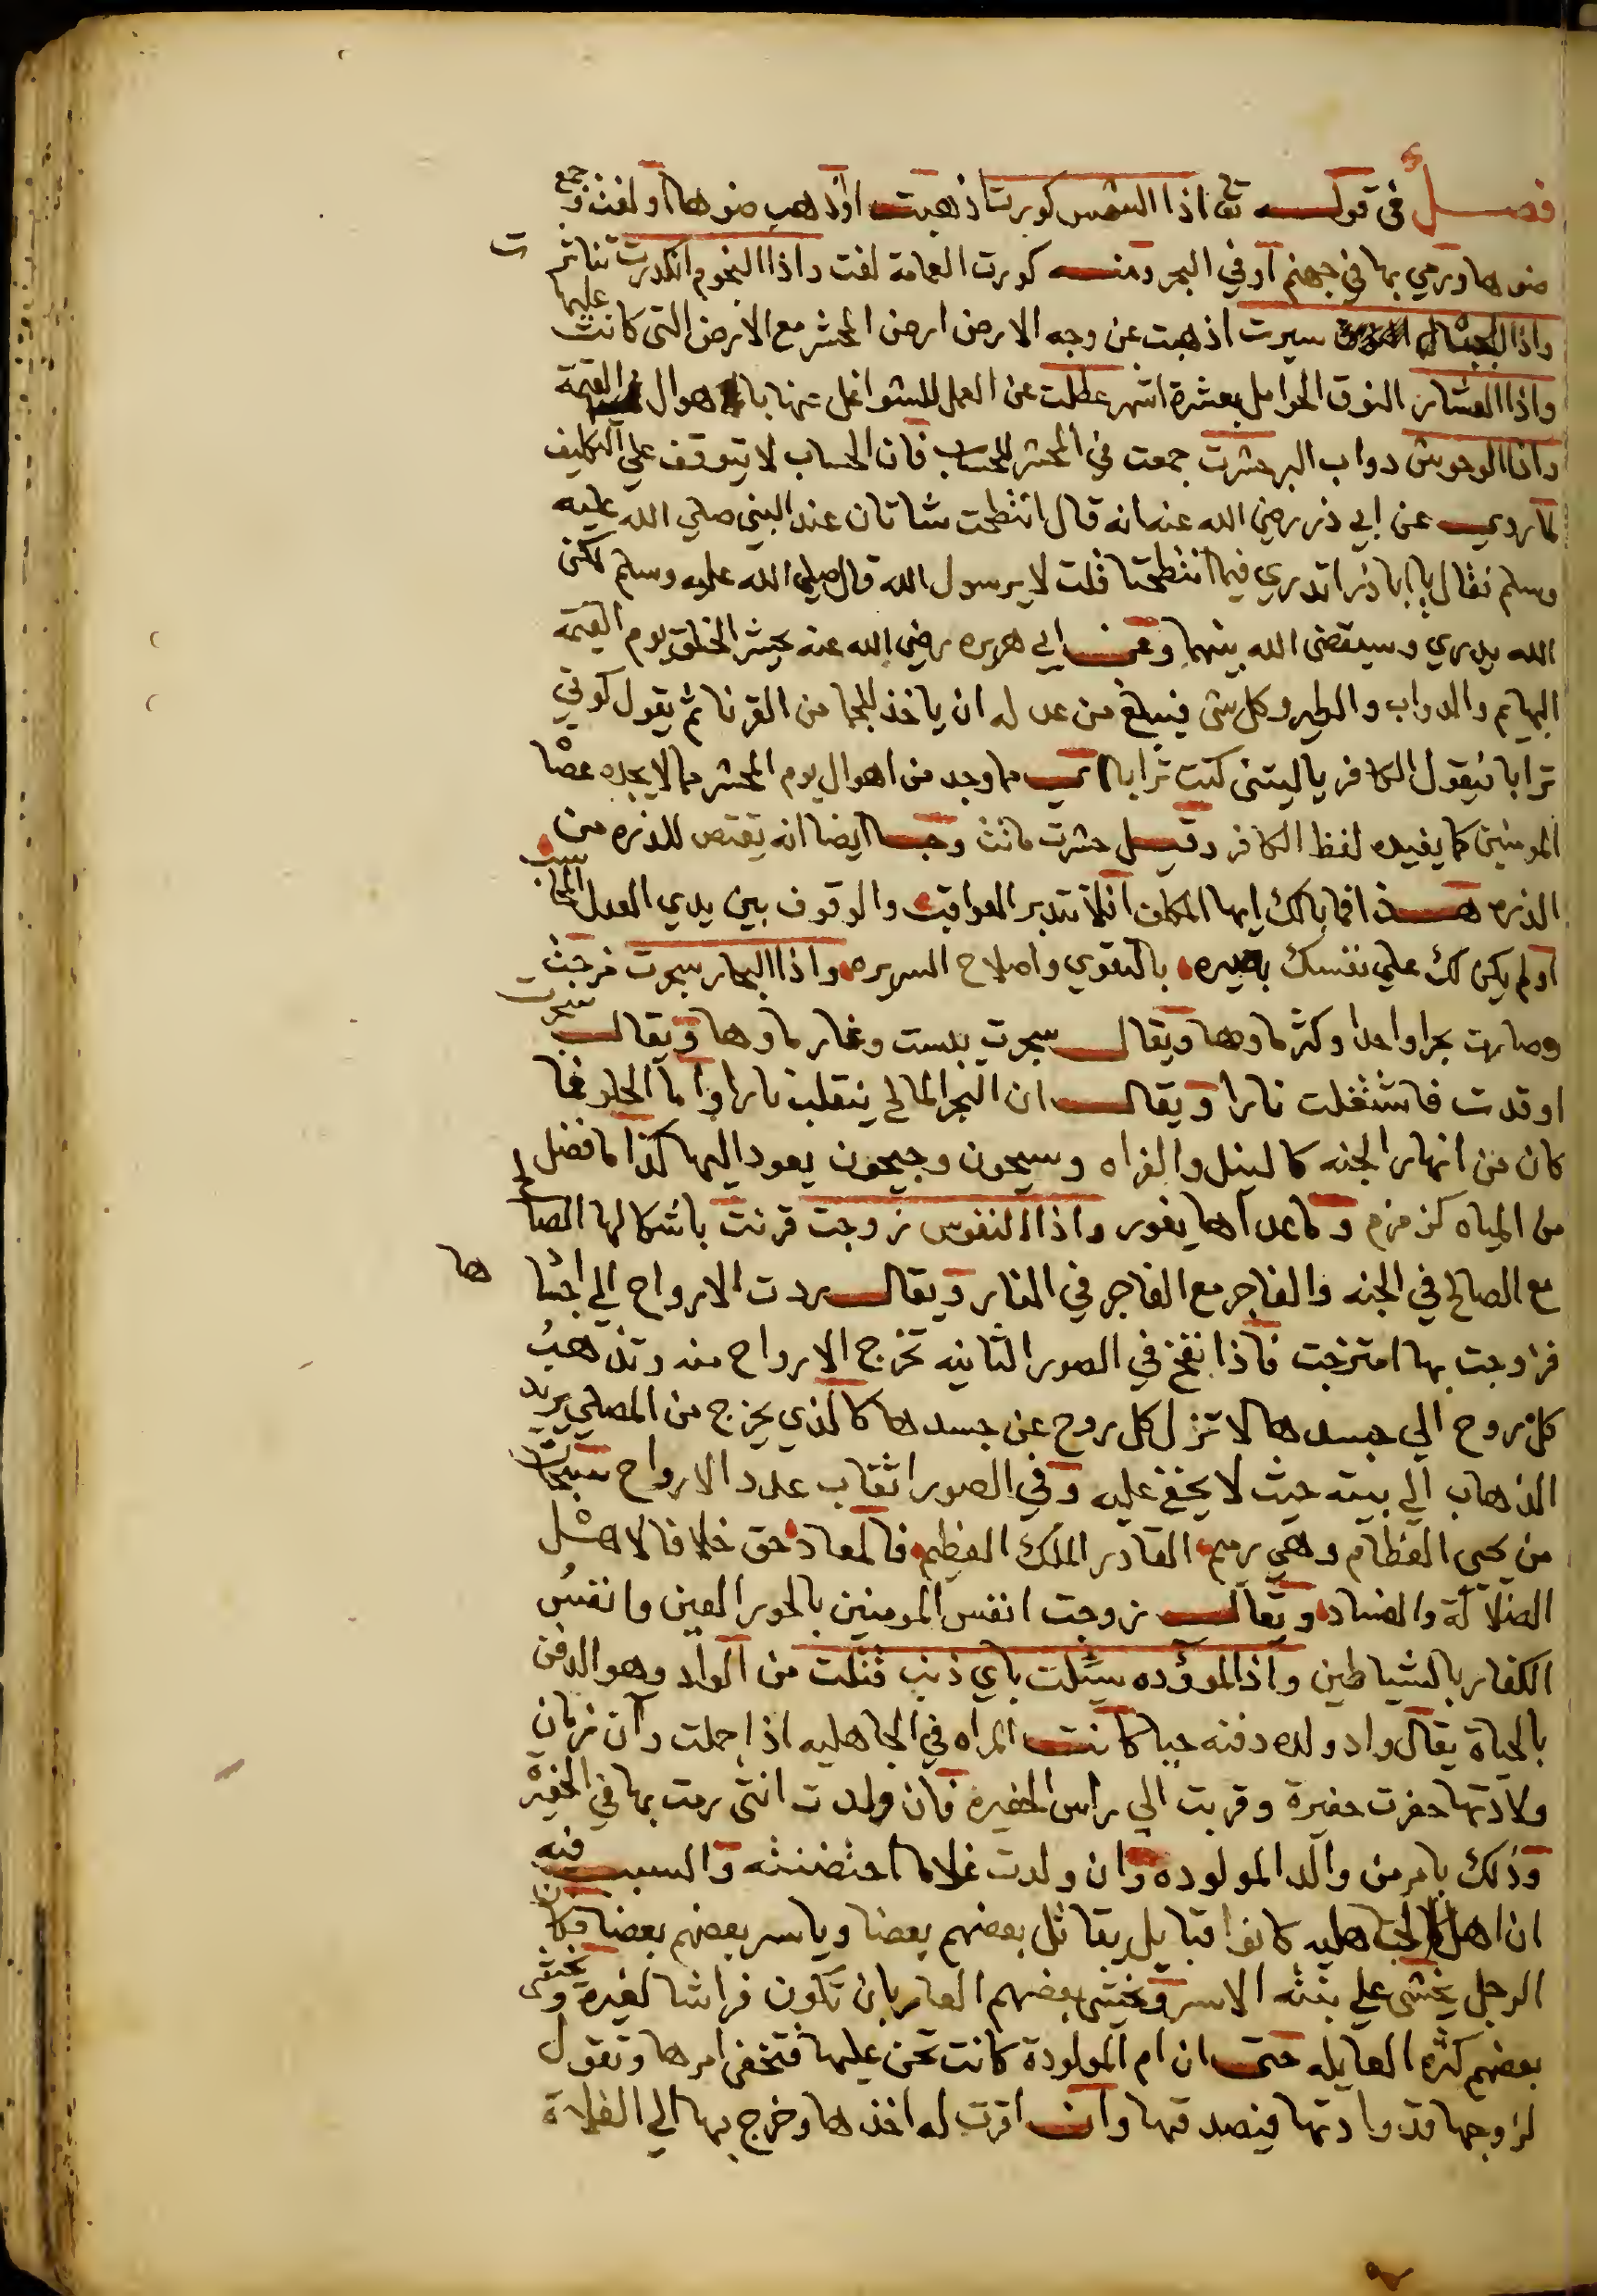 فصل في قوله تع اذا الشمس كورت اذهبت او ذهب ضوها او لفت وجمع
ضوها ورمي بها في جهنم او في البحر ومنه كورت العمامة لفت واذا النجوم انكدرت تناثرت
واذا الجبال سيرت اذهبت عن وجه الارض ارض المحشر مع الارض التي كانت عليها
واذا العشار النوق الحوامل بعشرة اشهر عطلت عن العمل للشواغل عنها باهوال القيمة
واذا الوحوش دواب البر حشرت جمعت في المحشر للحساب فان الحساب لا يتوقف علي التكليف
لما روي عن ابي ذر رضي الله عنه انه قال انتطحت شاتان عند النبي صلي الله عليه
وسلم فقال يا ابا ذر اتدري فيما انتطحتا قلت لا يرسول الله قال صلي الله عليه وسلم لكن
الله يدري وسيقضي الله بينهما وعن ابي هريره رضي الله عنه يحشر الخلق يوم القيمة
البهايم والدواب والطير وكل شي فيبلغ من عدله ان ياخذ للجما من القرنا ثم يقول كوني
ترابا فيقول الكافر ياليتني كنت ترابا اي مما وجد من اهوال يوم المحشر مما لا يجده عصا
المومنين كما يفيده لفظ الكافر وقيل حشرت ماتت وجا ايضا انه يقتص للذره من
الذره هذا فما بالك ايها المكلف افلا تتدبر العواقب والوقوف بين يدي العدل المحاسب
اولم يكن لك علي نفسك بصيره بالتقوي واصلاح السريره واذا البحار سجرت فرجت
وصارت بحرا واحدا وكثر ماوها ويقال سجرت يبست وغار ماوها ويقال سجرت
اوقدت فاشتغلت نارا ويقال ان البحر المالح ينقلب نارا واما الحلو فما
كان من انهار الجنه كالنيل والفراه وسيحون وجيحون يعود اليها كذا ما فضل
من المياه كزمزم وما عداها يغور واذا النفوس زوجت قرنت باشكالها الصالح
مع الصالح في الجنه والفاجر مع الفاجر في النار ويقال ردت الارواح الي اجسادها
فزوجت بها امتزجت فاذا نفخ في الصور الثانيه تخرج الارواح منه وتذهب
كل روح الي جسدها لا تزل كل روح عن جسدها كالذي يخرج من المصلي يريد
الذهاب الي بيته حيث لا يخفي عليه وفي الصور اثقاب عدد الارواح سبحان
من يحي العظام وهي رميم القادر الملك العظيم فالمعاد حق خلافا لاهل
الضلالة والفساد ويقال زوجت انفس المومنين بالحور العين وانفس
الكفار بالشياطين واذا الموؤده سيلت باي ذنب قتلت من الواد وهو الدفن
بالحياة يقال واد ولده دفنه حيا كانت المراه في الجاهليه اذا حملت وان زمان
ولادتها حفرت حفيرة وقربت الي راس الحفيره فان ولدت انثي رمت بها في الحفيره
وذلك بامر من والد المولوده وان ولدت غلاما احتضنته والسبب فيه
ان اهل الجاهليه كانوا قبايل يقاتل بعضهم بعضا وياسر بعضهم بعضا فكان
الرجل يخشي علي بنته الاسر ويخشي بعضهم العار بان تكون فراشا لغيره ويخشي
بعضهم كثره العايله حتي ان ام المولودة كانت تحن عليها فتخفي امرها وتقول
لزوجها قد وادتها فيصدقها وان اقرت له اخذها وخرج بها الي الفلاة